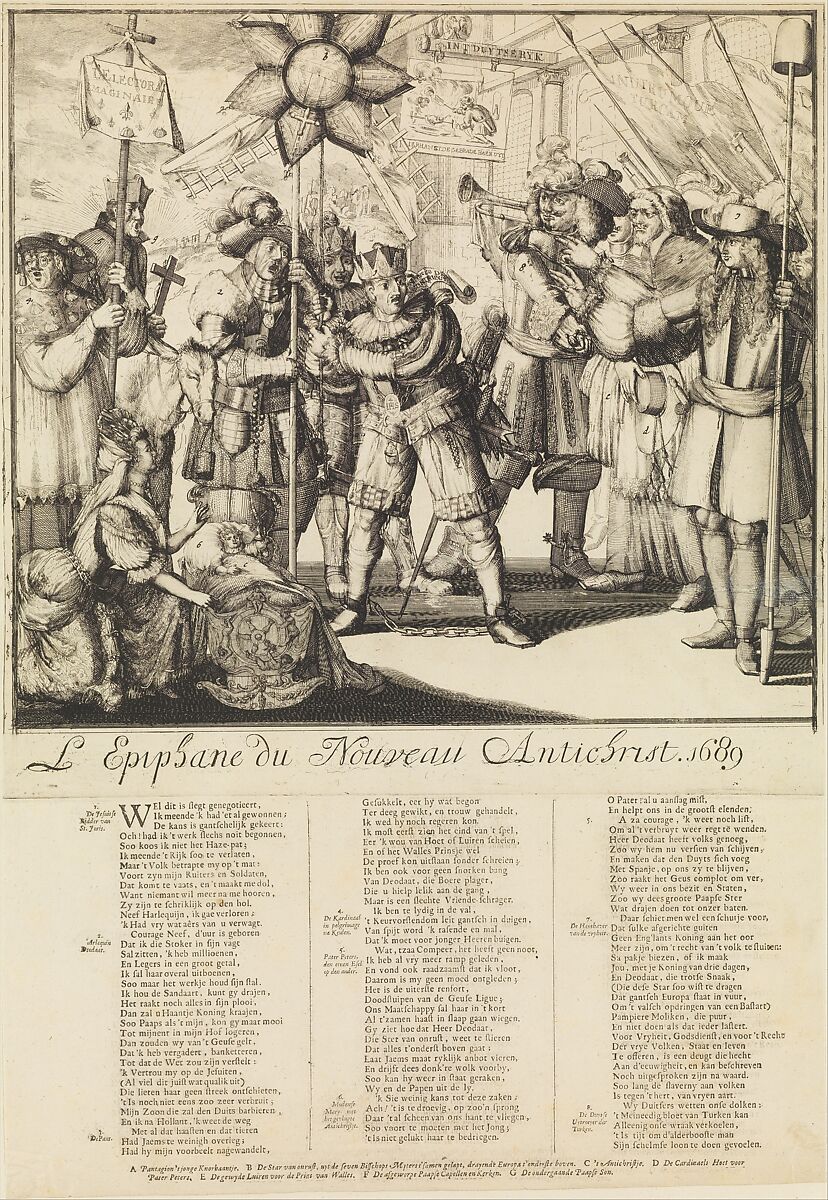 ELECTORA
IMAGINAIRE
INT DUYTSE RYK
L Epiphane du Nouveau Antichrist. 1689
1.
De Jesuitse
Ridder van
St. Joris.
WEl dit is slegt genegotieert,
Ik meende 'k had 'et al gewonnen;
De kans is gantschelijk gekeert:
Och! had ik 't werk slechs noit begonnen,
Soo koos ik niet het Haze-pat;
Ik meende 't Rijk soo te verlaten,
Maar 't Volk betrapte my op 't mat:
Voort zyn mijn Ruiters en Soldaten,
Dat komt te vaats, en 't maakt me dol,
Want niemant wil meer na me hooren,
Zy zijn te schriklijk op den hol.
Neef Harlequijn, ik gae verloren;
'k Had vry wat aêrs van u verwagt.
2.
Arlequin
Deodaat.
Courage Neef, d'uur is geboren
Dat ik die Stoker in sijn vagt
Sal zitten, 'k heb millioenen,
En Legers in een groot getal,
Ik sal haar overal uitboenen,
Soo maar het werkje houd sijn stal.
Ik hou de Sandaart, kunt gy drajen,
Het raakt noch alles in sijn plooi,
Dan zal u Haantje Koning kraajen,
Soo Paaps als 't mijn, kon gy maar mooi
Tot mijnent in mijn Hof logeren,
Dan zouden wy van 't Geuse gelt,
Dat 'k heb vergadert, banketteren,
Tot dat de Wet zou zijn verstelt:
'k Vertrou my op de Jesuiten,
(Al viel dit juist wat qualik uit)
Die lieten haar geen streek ontschieten,
't Is noch niet eens zoo zeer verbruit;
Mijn Zoon die zal den Duits barbieren,
En ik na Hollant, 'k weet de weg
3.
De Paus.
Met al dat haasten en dat tieren
Had Jaems te weinigh overleg;
Had hy mijn voorbeelt nagewandelt,
Gesukkelt, eer hy wat begon
Ter deeg gewikt, en trouw gehandelt,
Ik wed hy noch regeren kon.
Ik most eerst zien het eind van 't spel,
Eer 'k wou van Hoet of Luiren scheien,
En of het Walles Prinsje wel
De proef kon uitstaan sonder schreien;
Ik ben ook voor geen snorken bang
Van Deodaat, die Boere plager,
Die u hielp lelik aan de gang,
Maar is een slechte Vriende-schrager.
4.
De Kardinaal
in pelgrimage
na Keulen.
Ik ben te lydig in de val,
't Keurvorstendom leit gantsch in duigen,
Van spijt word 'k rasende en mal,
Dat 'k moet voor jonger Heeren buigen.
5.
Pater Peters,
den eenen Esel
op den ander.
Wat, tzaa Compeer, het heeft geen noot,
Ik heb al vry meer ramp geleden,
En vond ook raadzaamst dat ik vloot,
Daarom is my geen moed ontgleden;
Het is de uiterste renfort,
Doodstuipen van de Geuse Ligue;
Ons Maatschappy sal haar in 't kort
Al t'zamen haast in slaap gaan wiegen.
Gy ziet hoe dat Heer Deodaar,
Die Ster van onrust, weet te stieren
Dat alles t'onderst boven gaat:
Laat Jaems maar ryklijk anbot vieren,
En drijft dees donk're wolk voorby,
Soo kan hy weer in staat geraken,
Wy en de Papen uit de ly.
6.
'k Sie weinig kans tot deze zaken;
Ach! 't is te droevig, op zoo'n sprong
Daar 't al scheen van ons hant te vliegen,
Soo voort te moeten met het Jong;
't Is niet gelukt haar te bedriegen.
O Pater! al u aanslag mist,
En helpt ons in de grootst elenden;
5.
A za courage, 'k weet noch list,
Om al 't verbruyt weer regt te wenden.
Heer Deodaat heeft volks genoeg,
Zoo wy hem nu versien van schijven,
En maken dat den Duyts sich voeg
Met Spanje, op ons zy te blijven,
Zoo raakt het Geus complot om ver,
Wy weer in ons bezit en Staten,
Zoo wy dees groote Paapse Ster
Wat drajen doen tot onzer baten.
7.
Daar schiet men wel een schuitje voor,
Dat sulke afgerichte guiten
Geen Englants Koning aan het oor
Meer zijn, om 't recht van 't volk te sluiten:
Sa pakje biezen, of ik maak
Jou, met je Koning van drie dagen,
En Deodaat, die trotse Snaak,
(Die dese Star soo wist te dragen
Dat gantsch Europa staat in vuur,
Om 't valsch opdringen van een Bastart)
Pampiere Moliken, die puur,
En niet doen als dat ieder lastert.
Voor Vryheit, Godsdienst, en voor 't Recht
Der vrye Volken, Staat en leven
Te offeren, is een deugt die hecht
Aan d'eeuwigheit, en kan beschreven
Noch uitgesproken zijn na waard.
Soo lang de slaverny aan volken
Is tegen 't hert, van vryen aart.
Wy Duitsers wetten onse dolken:
't Meineedig bloet van Turken kan
Alleenig onse wraak verkoelen,
't Is tijt om d'alderbooste man
Sijn schelmse loon te doen gevoelen.
A Pantagion 'tjonge Knorbaantje. B De Star van onrust, uyt de seven Bisschops Myters t'samen gelapt, drayende Europa t'onderste boven. C 't Antichristje. D De Cardinaels Hoet voor
Pater Peters. E De gewyde Luiren voor de Prins van Walles. F De afgeworpe Paapse Capellen en Kerken. G De ondergaande Paapse Son.